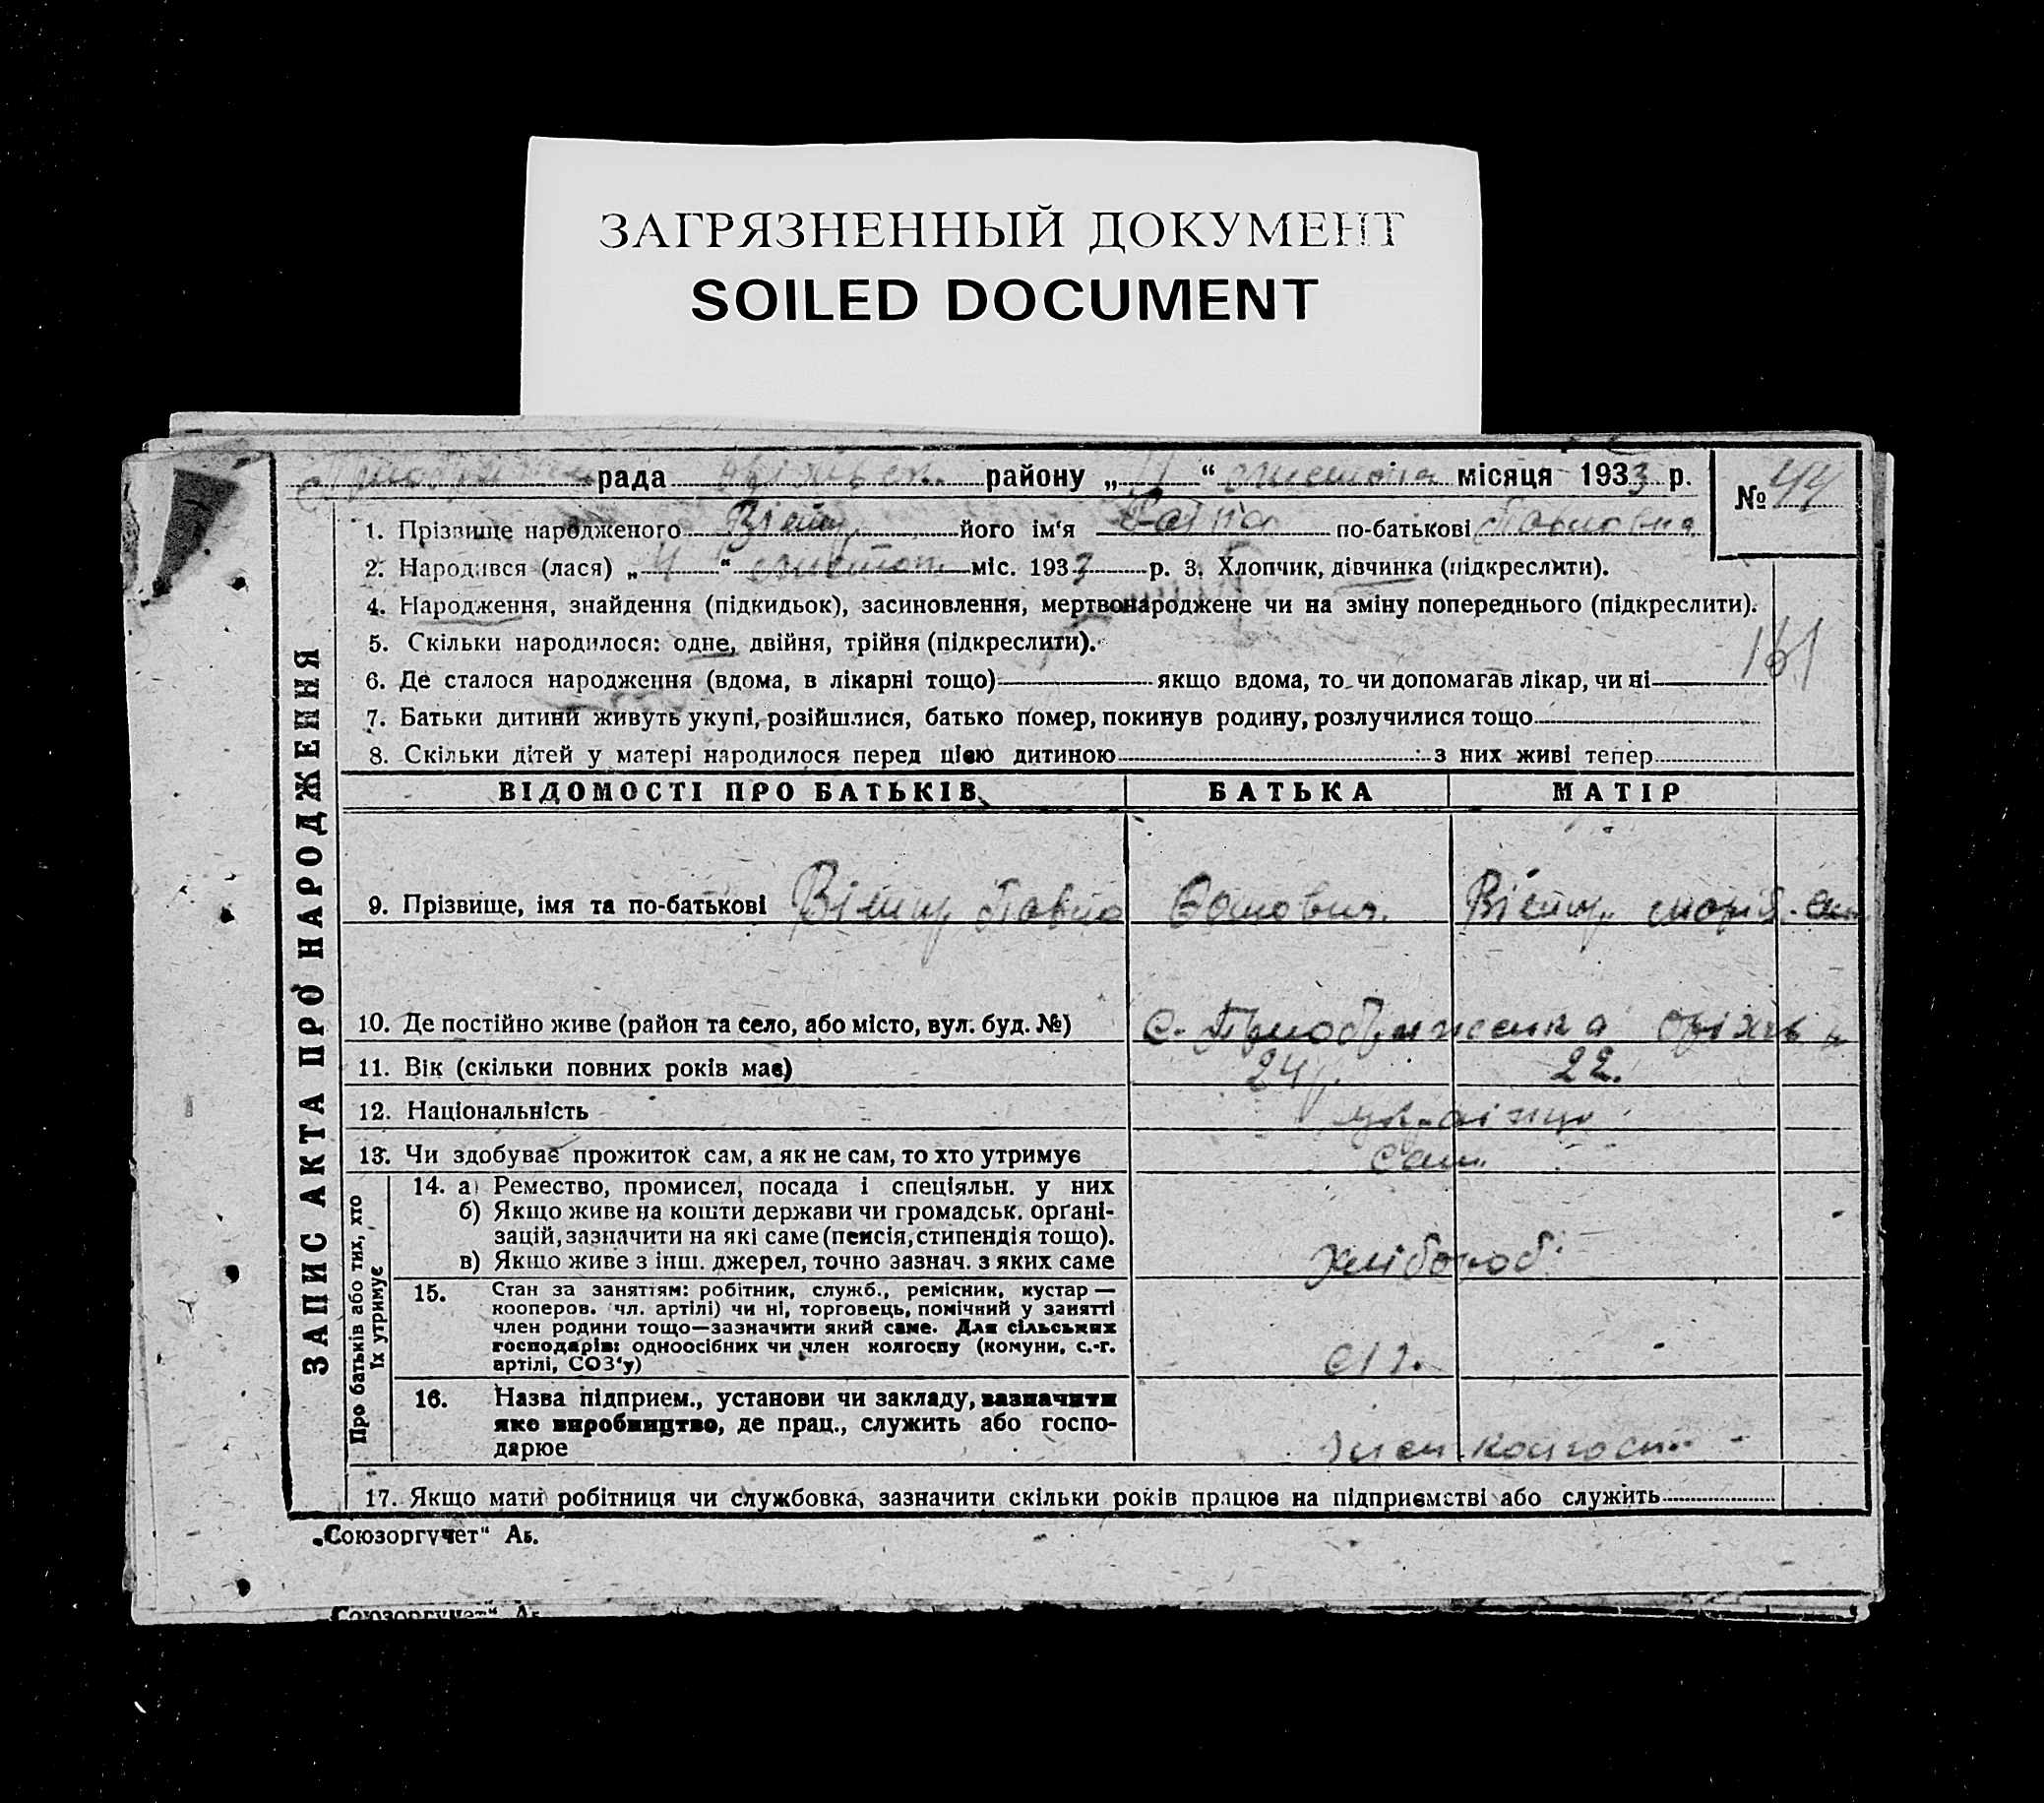 ЗАГРЯЗНЕННЫЙ ДОКУМЕНТ
SOILED DOCUMENT
рада району „ “ листопа місяця 1933 р.
№ 44
1. Прізвище народженого його імʻя Раїна по-батькові Павловна
2. Народився (лася) „ “ листоп міс. 1933 р. 3. Хлопчик, дівчинка (підкреслити).
4. Народження, знайдення (підкидьок), засиновлення, мертвонароджене чи на зміну попереднього (підкреслити).
5. Скільки народилося: одне, двійня, трійня (підкреслити).
161
6. Де сталося народження (вдома, в лікарні тощо) якщо вдома, то чи допомагав лікар, чи ні
7. Батьки дитини живуть укупі, розійшлися, батько помер, покинув родину, розлучилися тощо
8. Скільки дітей у матері народилося перед цією дитиною з них живі тепер
ЗАПИС АКТА ПРО НАРОДЖЕННЯ
ВІДОМОСТІ ПРО БАТЬКІВ БАТЬКА МАТІР
9. Прізвище, імя та по-батькові Павло
10. Де постійно живе (район та село, або місто, вул. буд. №) с.
11. Вік (скільки повних років має) 24 р. 22.
12. Національність
13. Чи здобуває прожиток сам, а як не сам, то хто утримує сам
Про батьків або тих, хто їх утримує
14. а) Ремество, промисел, посада і спеціяльн. у них
б) Якщо живе на кошти держави чи громадськ. орґані-
зацій, зазначити на які саме (пенсія, стипендія тощо).
в) Якщо живе з інш. джерел, точно зазнач. з яких саме хлібороб
15. Стан за заняттям: робітник, служб., ремісник, кустар —
кооперов. чл. артілі) чи ні, торговець, помічний у занятті
член родини тощо—зазначити який саме. Для сільських
господарів: одноосібних чи член колгоспу (комуни, с.-г.
артілі, СОЗʻу)
16. Назва підприєм., установи чи закладу, зазначити
яке виробництво, де прац., служить або госпо-
дарює член колгосп
17. Якщо мати робітниця чи службовка, зазначити скільки років працює на підприємстві або служить
„Союзоргучет“ Аб.
„Союзоргучет“ Аб.